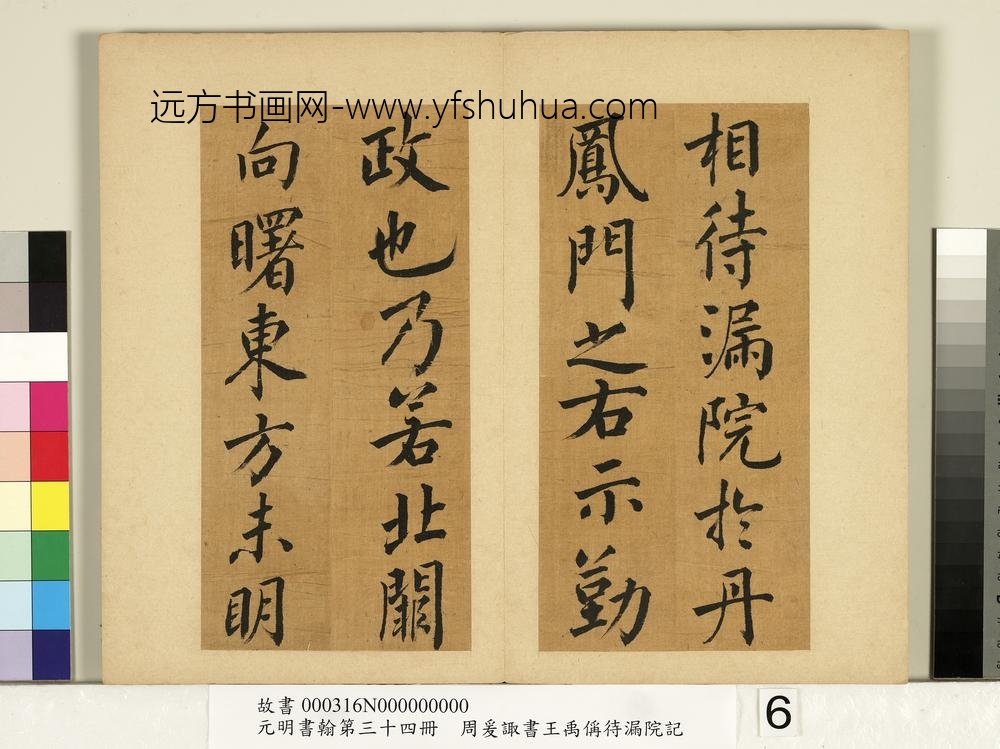 远方书画网-www.yfshuhua.com
相待漏院於丹
鳳門之右示勤
政也乃若北闕
向曙東方未明
故書 000316N000000000
元明書翰第三十四冊 周爰諏書王禹偁待漏院記
6